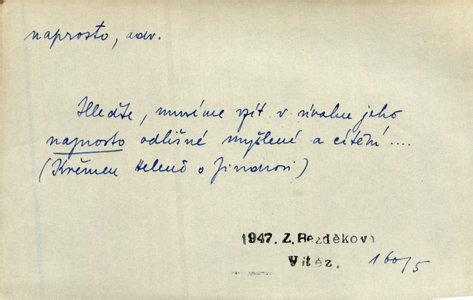 naprosto, adv.
Hleďte, musíme vzít v úvahu jeho
naprosto odlišné myšlení a cítění ....
(Křemen Heleně o Jindrovi)
1947. Z. Bezděková
Vítěz. 160/5